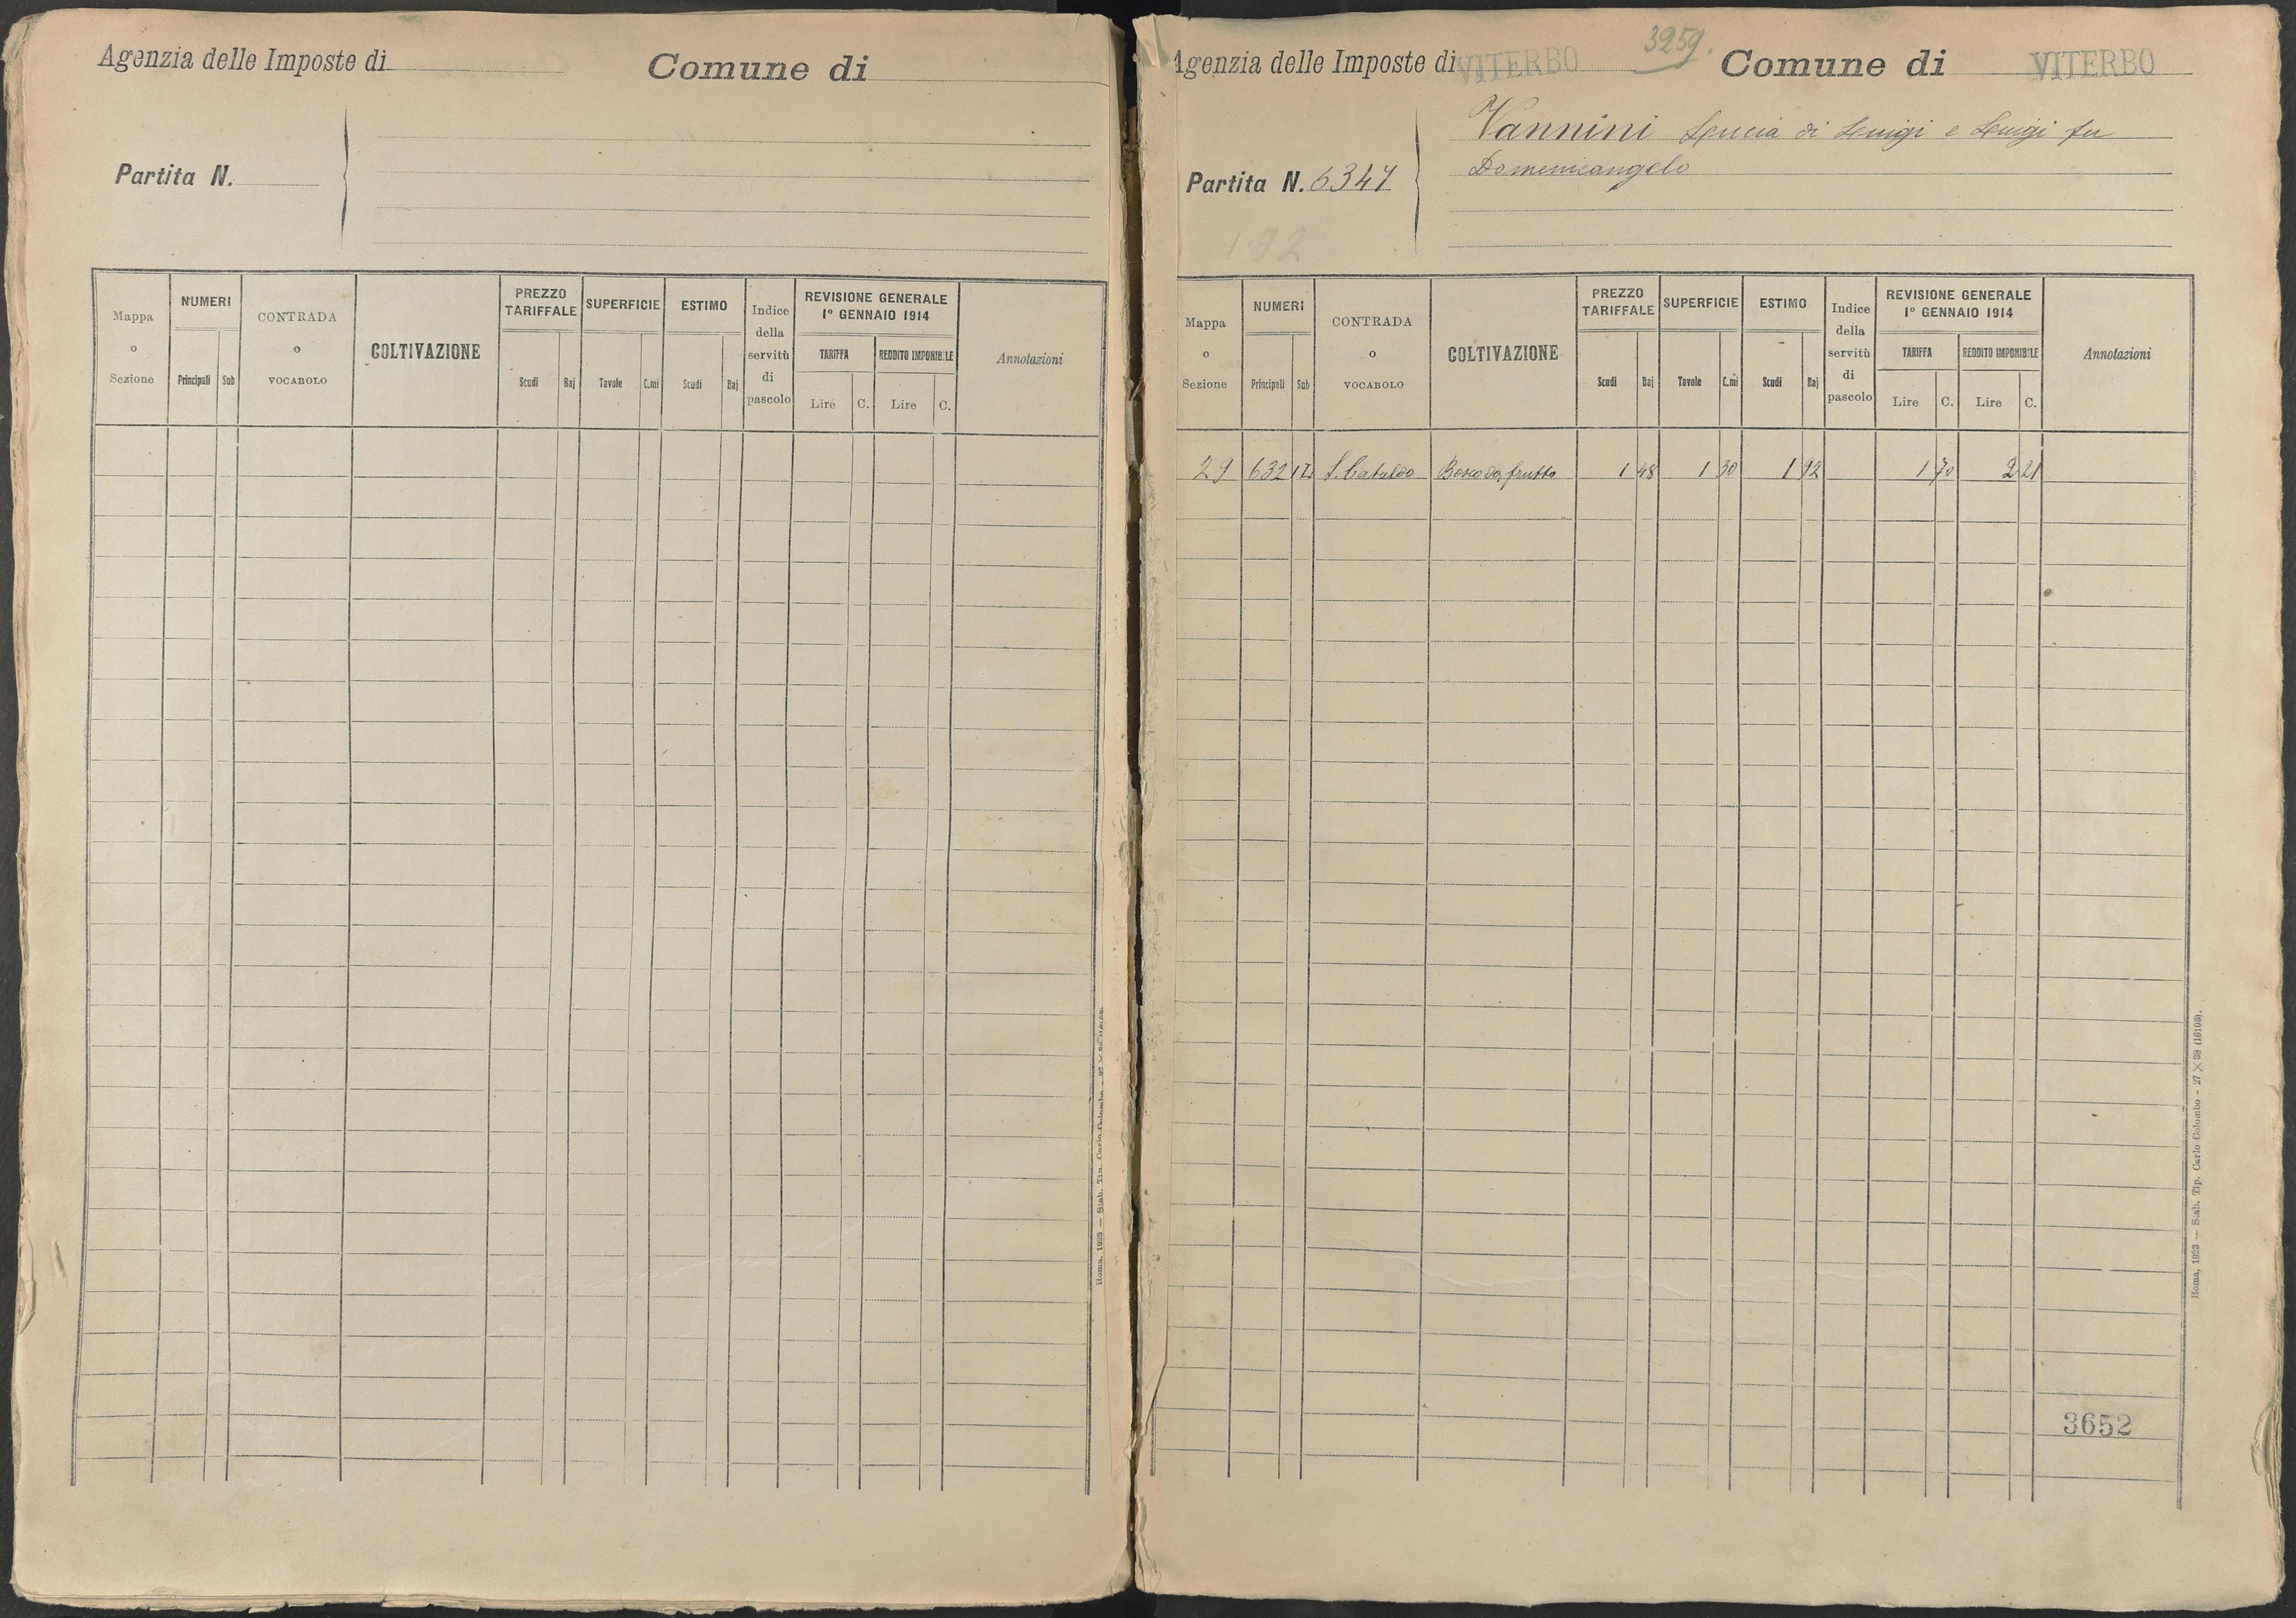 Agenzia delle Imposte di
Comune di
Partita N.
Mappa o Sezione
NUMERI
Principali Sub
CONTRADA o VOCABOLO
COLTIVAZIONE
PREZZO TARIFFALE
Scudi Baj
SUPERFICIE
Tavole C.mi
ESTIMO
Scudi Baj
Indice della servitù di pascolo
REVISIONE GENERALE
1° GENNAIO 1914
TARIFFA REDDITO IMPONIBILE
Lire C. Lire C.
Annotazioni
Roma, 1923 — Stab. Tip. Carlo Colombo - 27 × 38 (16103).
3259.
Agenzia delle Imposte di VITERBO Comune di VITERBO
Vannini Lucia di Luigi e Luigi fu
Domenicangelo
Partita N. 6347
192
Mappa o Sezione
NUMERI
Principali Sub
CONTRADA o VOCABOLO
COLTIVAZIONE
PREZZO TARIFFALE
Scudi Baj
SUPERFICIE
Tavole C.mi
ESTIMO
Scudi Baj
Indice della servitù di pascolo
REVISIONE GENERALE
1° GENNAIO 1914
TARIFFA REDDITO IMPONIBILE
Lire C. Lire C.
Annotazioni
29 632 S. Cataldo frutto 1 48 1 30 1 92 1 70 2 21
3652
Roma, 1923 — Stab. Tip. Carlo Colombo - 27 × 38 (16103).